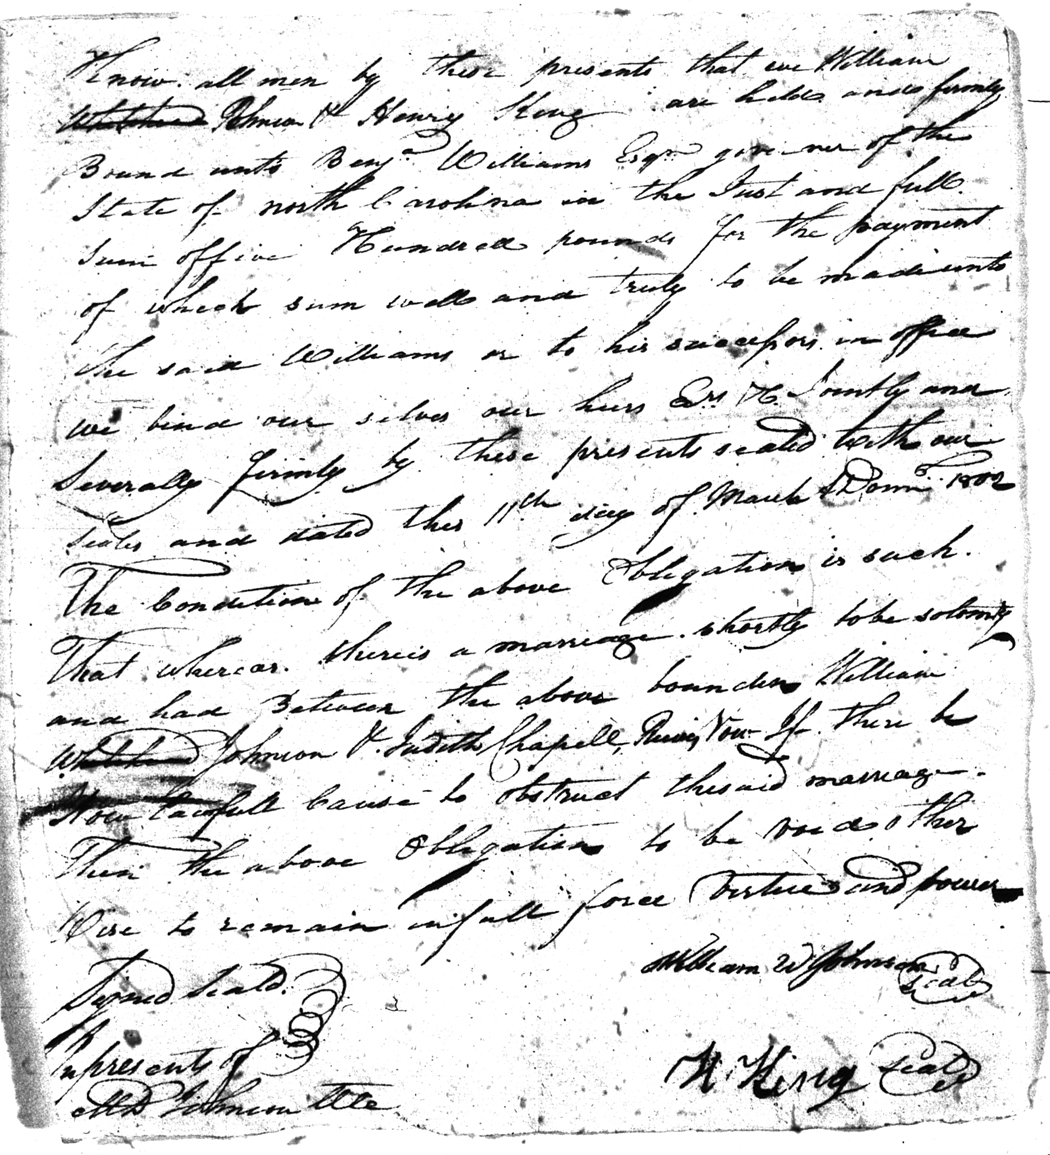 Know all men by these presents that we William
Johnson & Henry King are held and firmly
Bound unto Benjn Williams Esqr governer of the
State of north Carolina in the Just and full
Sum of five Hundred pounds for the payment
of which sum well and truly to be made unto
the said Williams or to his successors in office
we bind our selves our heirs Exrs &c. Jointly and
Severally firmly by these presents sealed with our
seales and dated this 11th day of March ADomo 1802
The Condition of the above Obligation is such.
That whereas. there is a marriage shortly to be solomly
and had Between the above bounden William
Johnson & Judith Chapell, Now If there be
Now lawfull Cause to obstruct the said marriage.
Then the above Obligation to be void other
Wise to remain in full force Virtue and power
William W Johnson seal
Signed Seald.
In presents of
H. King seal
Johnson